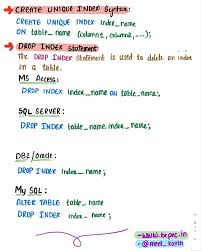 → CREATE UNIQUE INDEX Syntax:
CREATE UNIQUE INDEX index_name
ON table_name (column1, column2, ...);
→ DROP INDEX Statement
The DROP INDEX Statement is used to delete an index
in a table.
MS Access:
DROP INDEX index_name ON table_name;
SQL SERVER:
DROP INDEX table_name.index_name;
DB2/Oracle:
DROP INDEX index_name;
My SQL:
ALTER TABLE table_name
DROP INDEX index_name;